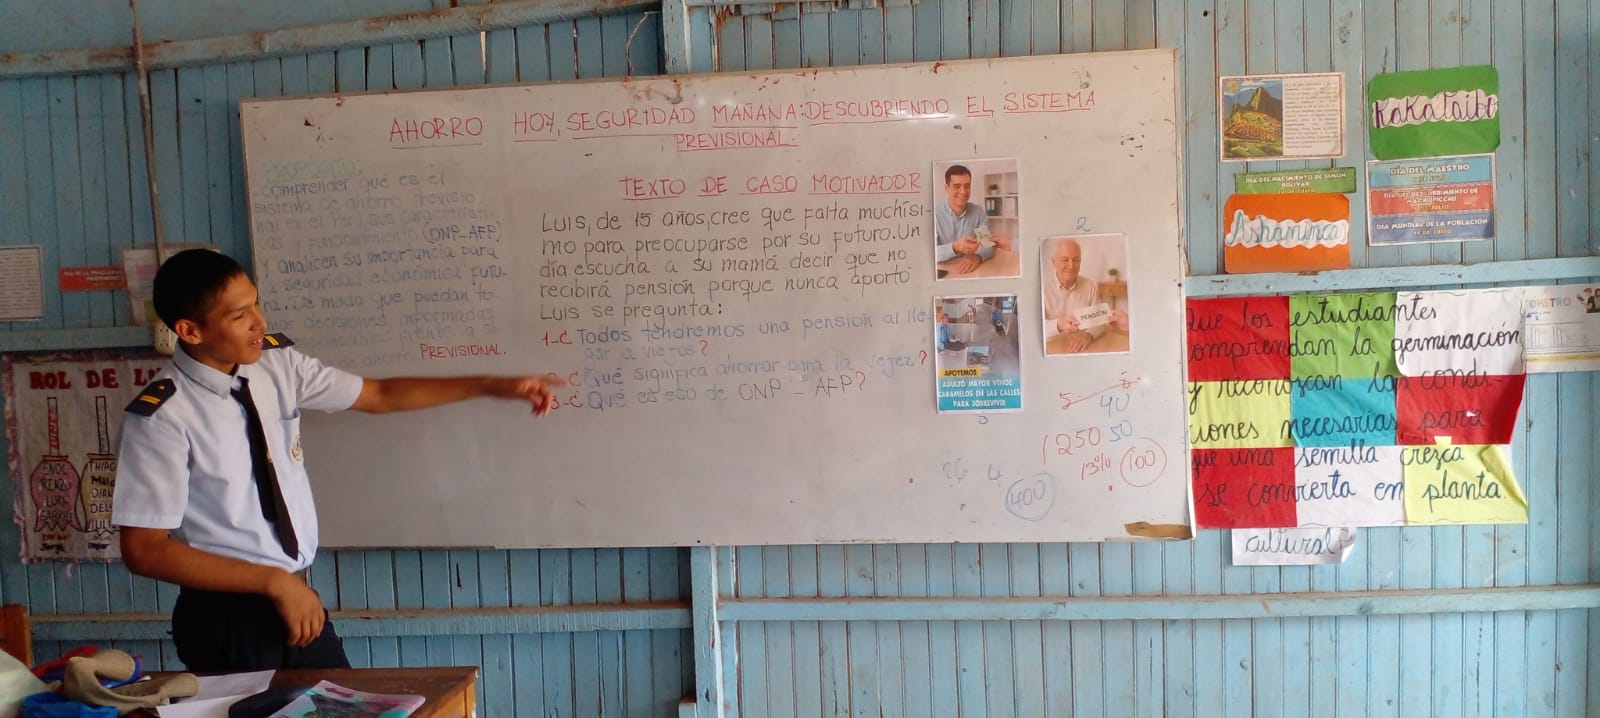 AHORRO HOY, SEGURIDAD MAÑANA: DESCUBRIENDO EL SISTEMA
PREVISIONAL.
PROPÓSITO:
comprender qué es el
sistema de ahorro previsio-
nal en el Perú, sus característi-
cas y funcionamiento (ONP-AFP)
y analicen su importancia para
la seguridad económica futu-
ra. De modo que puedan to-
mar decisiones informadas
responsables frente a si
de ahorro PREVISIONAL.
TEXTO DE CASO MOTIVADOR
Luis, de 15 años, cree que falta muchísi-
mo para preocuparse por su futuro. Un
día escucha a su mamá decir que no
recibirá pensión porque nunca aportó
Luis se pregunta:
1-¿Todos tendremos una pensión al lle-
gar a viejos?
2-¿Qué significa ahorrar para la vejez?
3-¿Qué es eso de ONP - AFP?
1
2
PENSIÓN
APOYEMOS
ADULTO MAYOR VENDE
CARAMELOS EN LAS CALLES
PARA SOBREVIVIR
3
5
40
1250 50
13% 100
26 4
400
KaKaTaibo
DÍA DEL NACIMIENTO DE SIMÓN
BOLIVAR
Ashaninca
DÍA DEL MAESTRO
DÍA DEL DESCUBRIMIENTO DE
MACHUPICCHU
DÍA MUNDIAL DE LA POBLACIÓN
11 DE JULIO
Que los estudiantes
comprendan la germinación
y reconozcan las condi-
ciones necesarias para
que una semilla crezca
y se convierta en planta.
cultural
ROL DE
ENOC
RENZO
THIAG